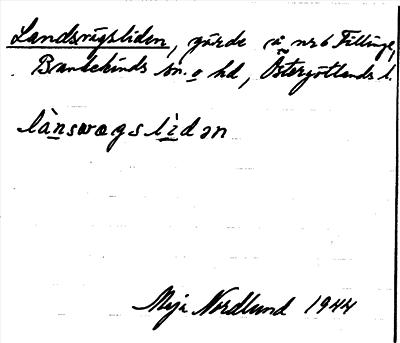 Landsvägsliden, gärde å nr 6 Fillinge,
Bankekinds sn. o hd, Östergötlands l.
lànswægslìdən
Maja Nordlund 1944